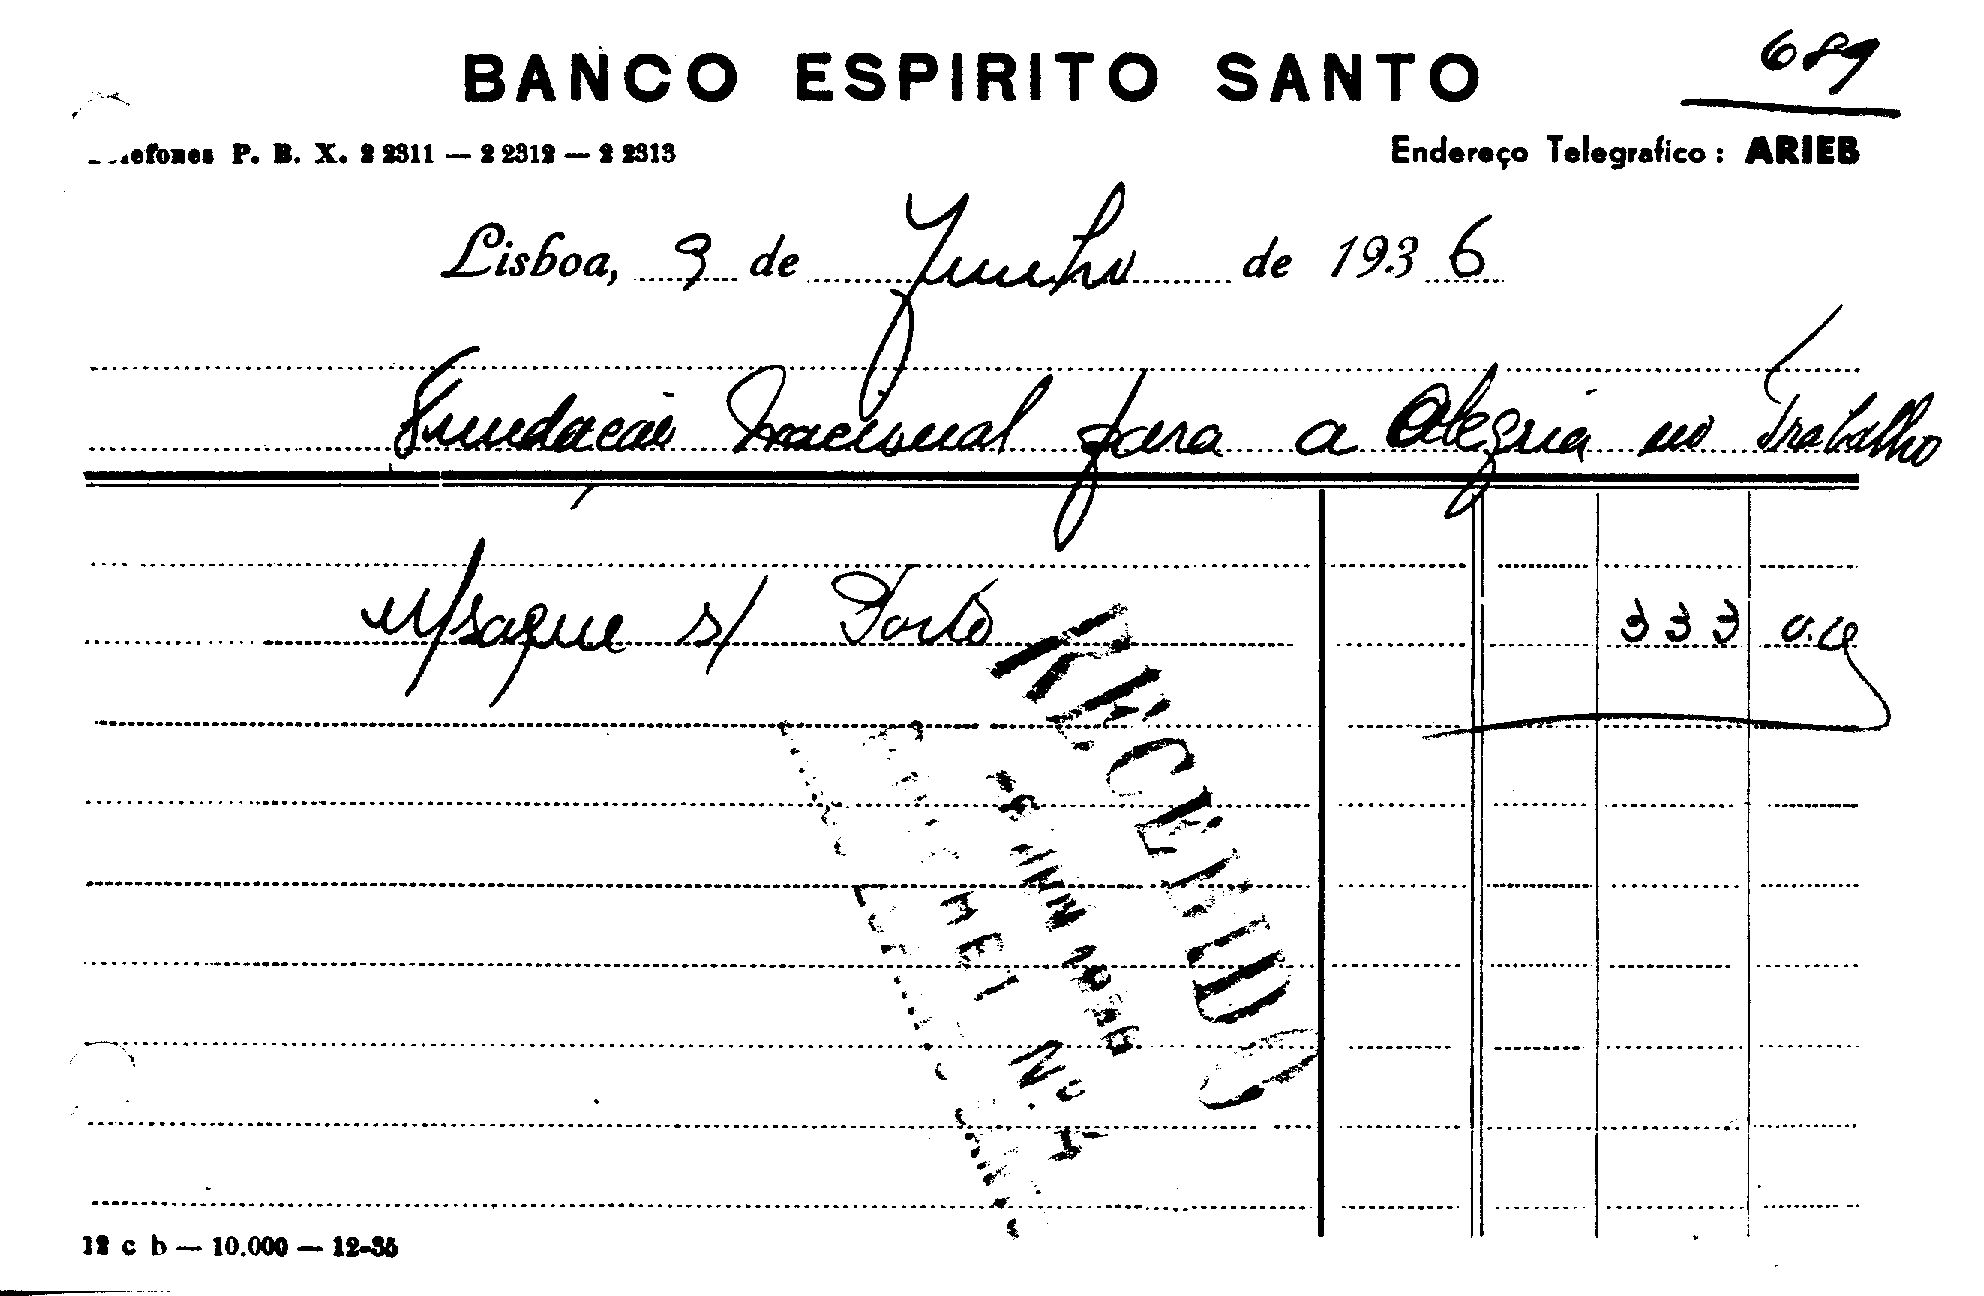 689
BANCO ESPIRITO SANTO
P. B. X. 2 2311 — 2 2312 — 2 2313
Endereço Telegrafico: ARIEB
Lisboa, 9 de Junho de 1936
Fundação Nacional para a Alegria no Trabalho
n/saque s/ Porto 333 00
RECEBIDO
Nº 4
12 c b — 10.000 — 12-35